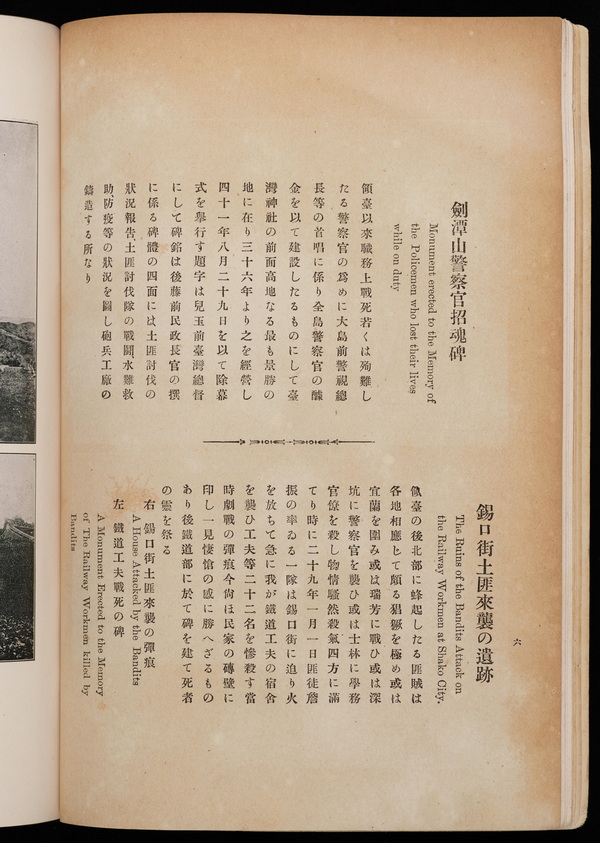 劍潭山警察官招魂碑
Monument erected to the Memory of
the Policemen who lost their lives
while on duty
領臺以來職務上戰死若くは殉難し
たる警察官の爲めに大島前警視總
長等の首唱に係り全島警察官の醵
金を以て建設したるものにして臺
灣神社の前面高地なる最も景勝の
地に在り三十六年より之を經營し
四十一年八月二十九日を以て除幕
式を舉行す題字は兒玉前臺灣總督
にして碑銘は後藤前民政長官の撰
に係る碑體の四面には土匪討伐の
狀況報告土匪討伐隊の戰鬪水難救
助防疫等の狀況を圖し砲兵工廠の
鑄造する所なり
錫口街土匪來襲の遺跡
The Ruins of the Bandits Attack on
the Railway Workmen at Shako City.
領臺の後北部に蜂起したる匪賊は
各地相應じて頗る猖獗を極め或は
宜蘭を圍み或は瑞芳に戰ひ或は深
坑に警察官を襲ひ或は士林に學務
官僚を殺し物情騷然殺氣四方に滿
てり時に二十九年一月一日匪徒詹
振の率ゐる一隊は錫口街に迫り火
を放ちて急に我が鐵道工夫の宿舍
を襲ひ工夫等二十二名を慘殺す當
時劇戰の彈痕今尙ほ民家の磚壁に
印し一見悽愴の感に勝へざるもの
あり後鐵道部に於て碑を建て死者
の靈を祭る
右 錫口街土匪來襲の彈痕
A House Attacked by the Bandits
左 鐵道工夫戰死の碑
A Monument Erected to the Memory
of The Railway Workmen killed by
Bandits
六